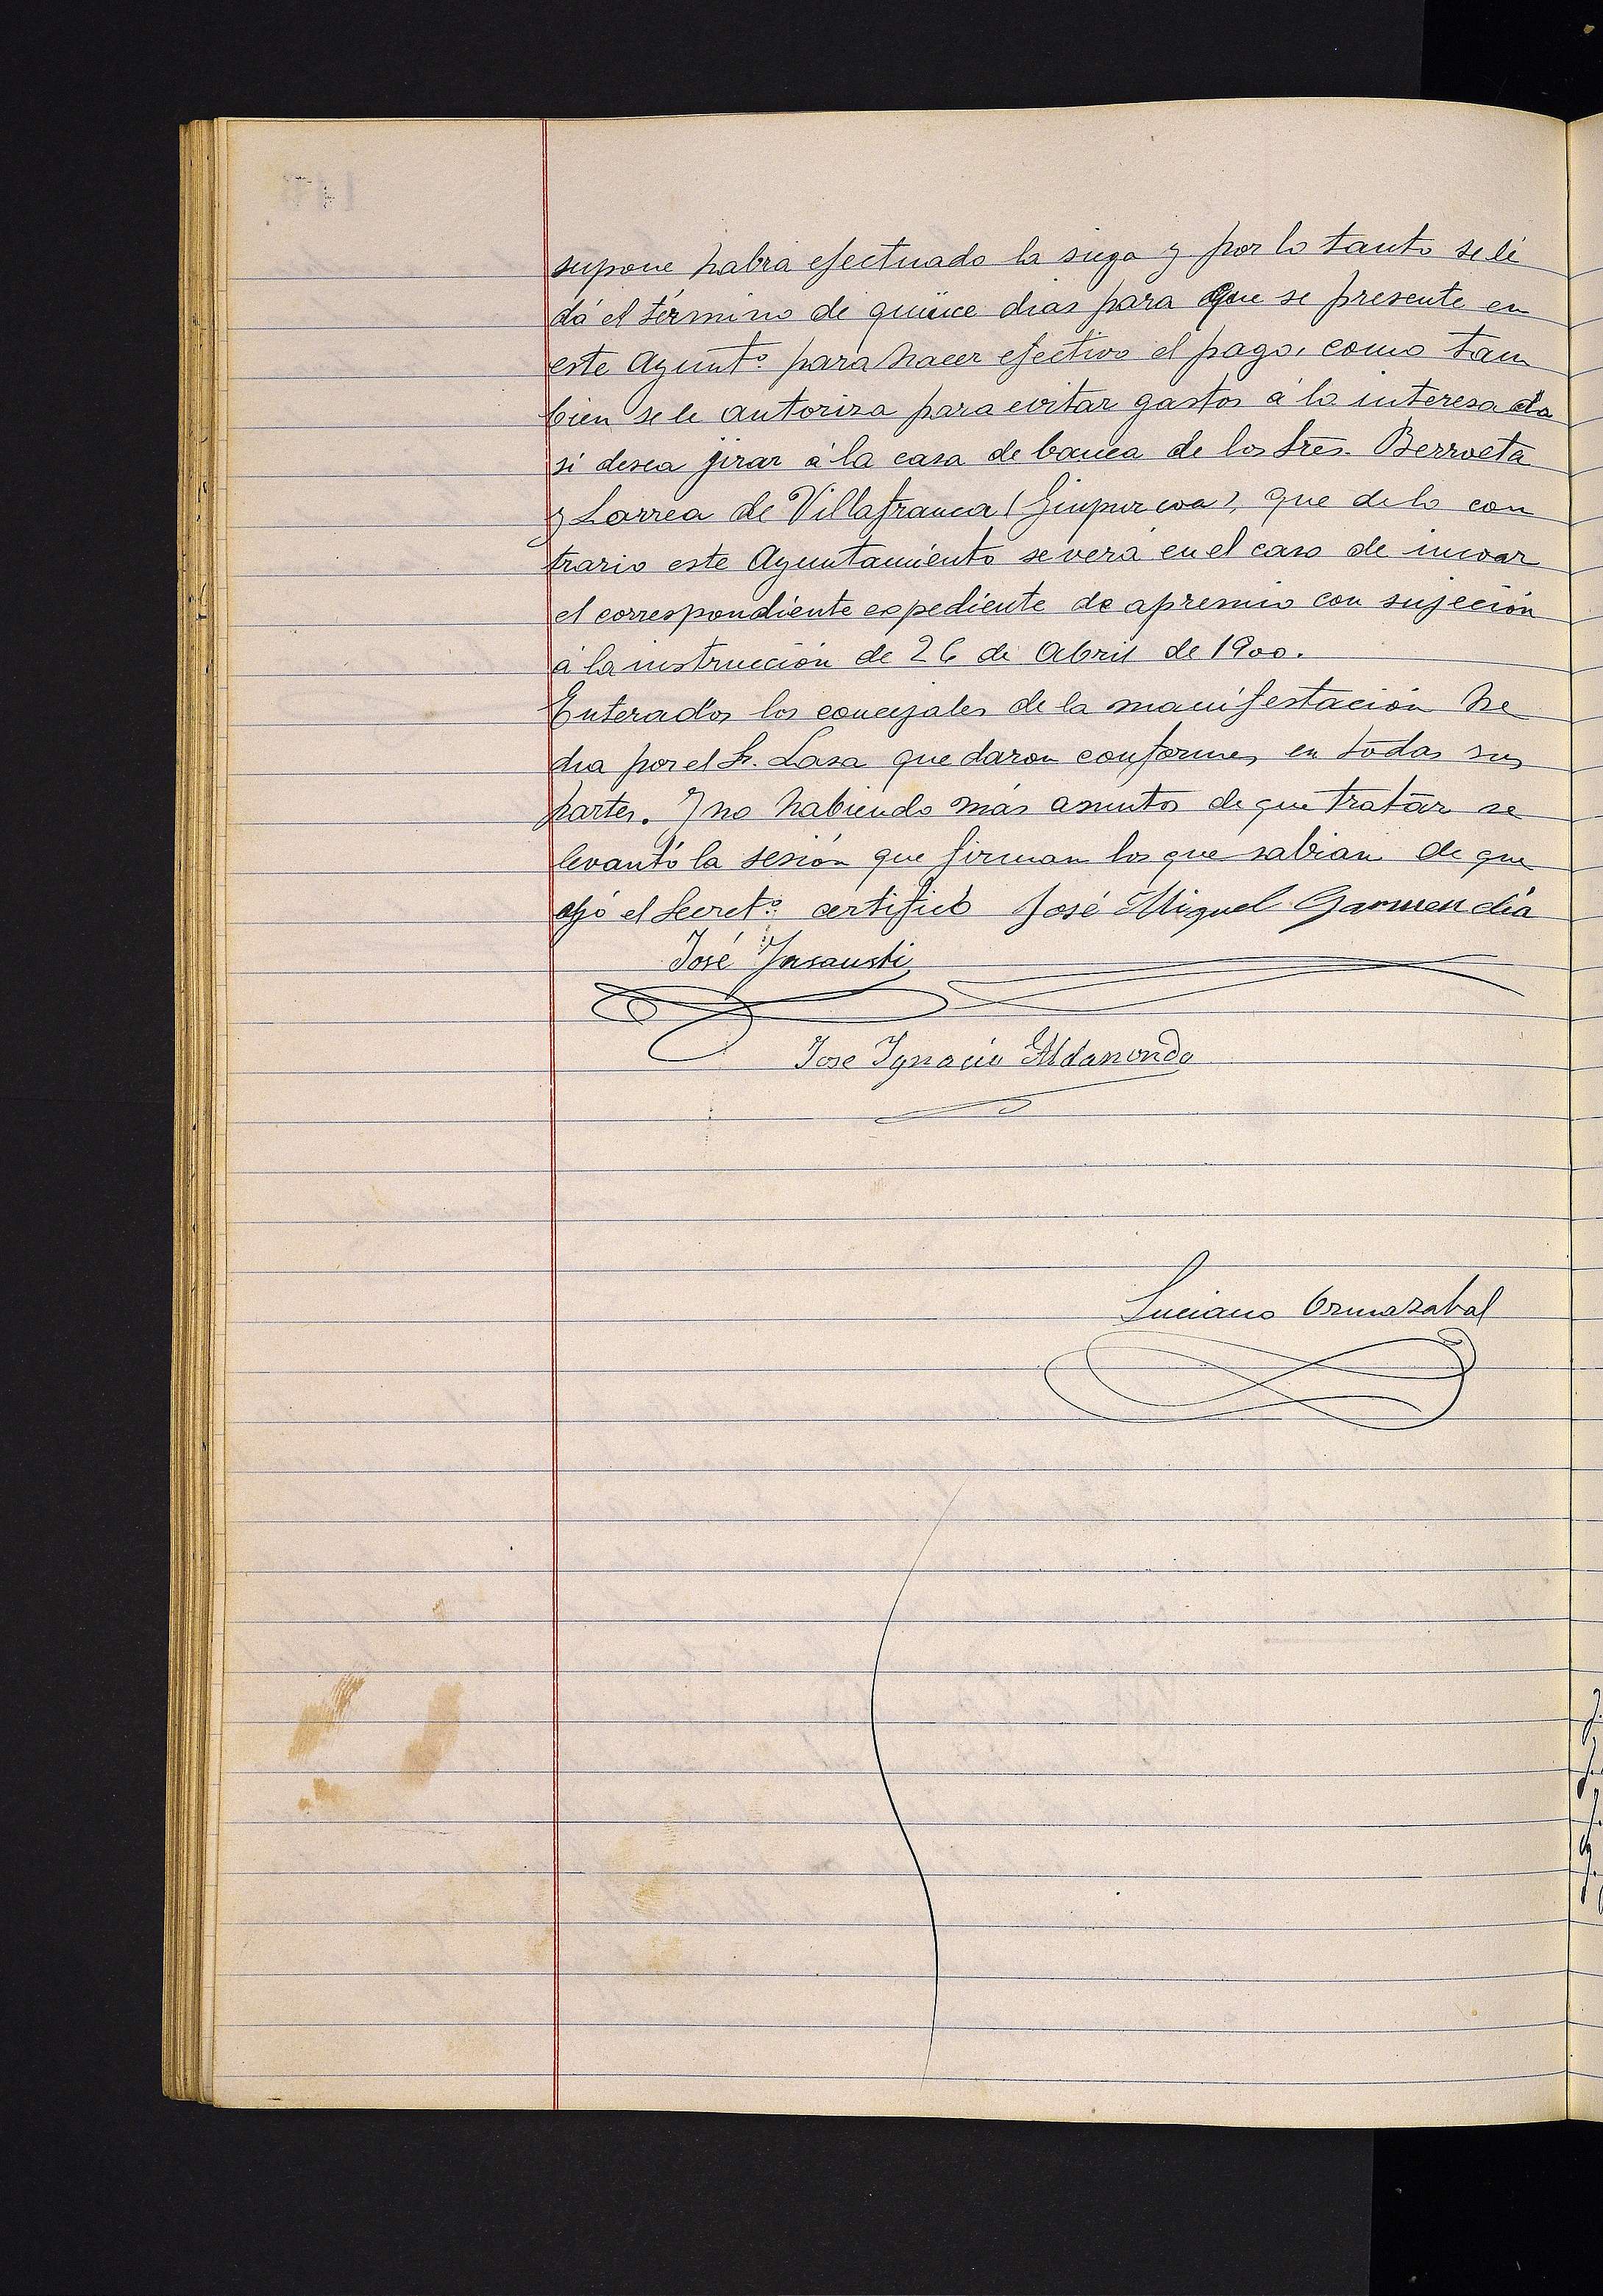 supone habra efectuado la siega y por lo tanto se le
dá el término de quince dias para que se presente en
este Ayuntº para hacer efectivo el pago, como tam
bien se le autoriza para evitar gastos á la interesada
si desea jirar á la casa de banca de los Sres. Berroeta
y Larrea de Villafranca (Guipuzcoa), que de lo con
trario este Ayuntamiento se verá en el caso de incoar
el correspondiente expediente de apremio con sujeción
á la instrucción de 26 de Abril de 1900.
Enterados los concejales de la manifestación he
cha por el Sr. Lasa quedaron conformes en todas sus
partes. Y no habiendo más asuntos de que tratar se
levantó la sesión que firman los que sabian de que
yó el Secretº certificó José Miguel Garmendia
José Insausti
Jose Ignacio Aldanondo
Luciano Ormazabal